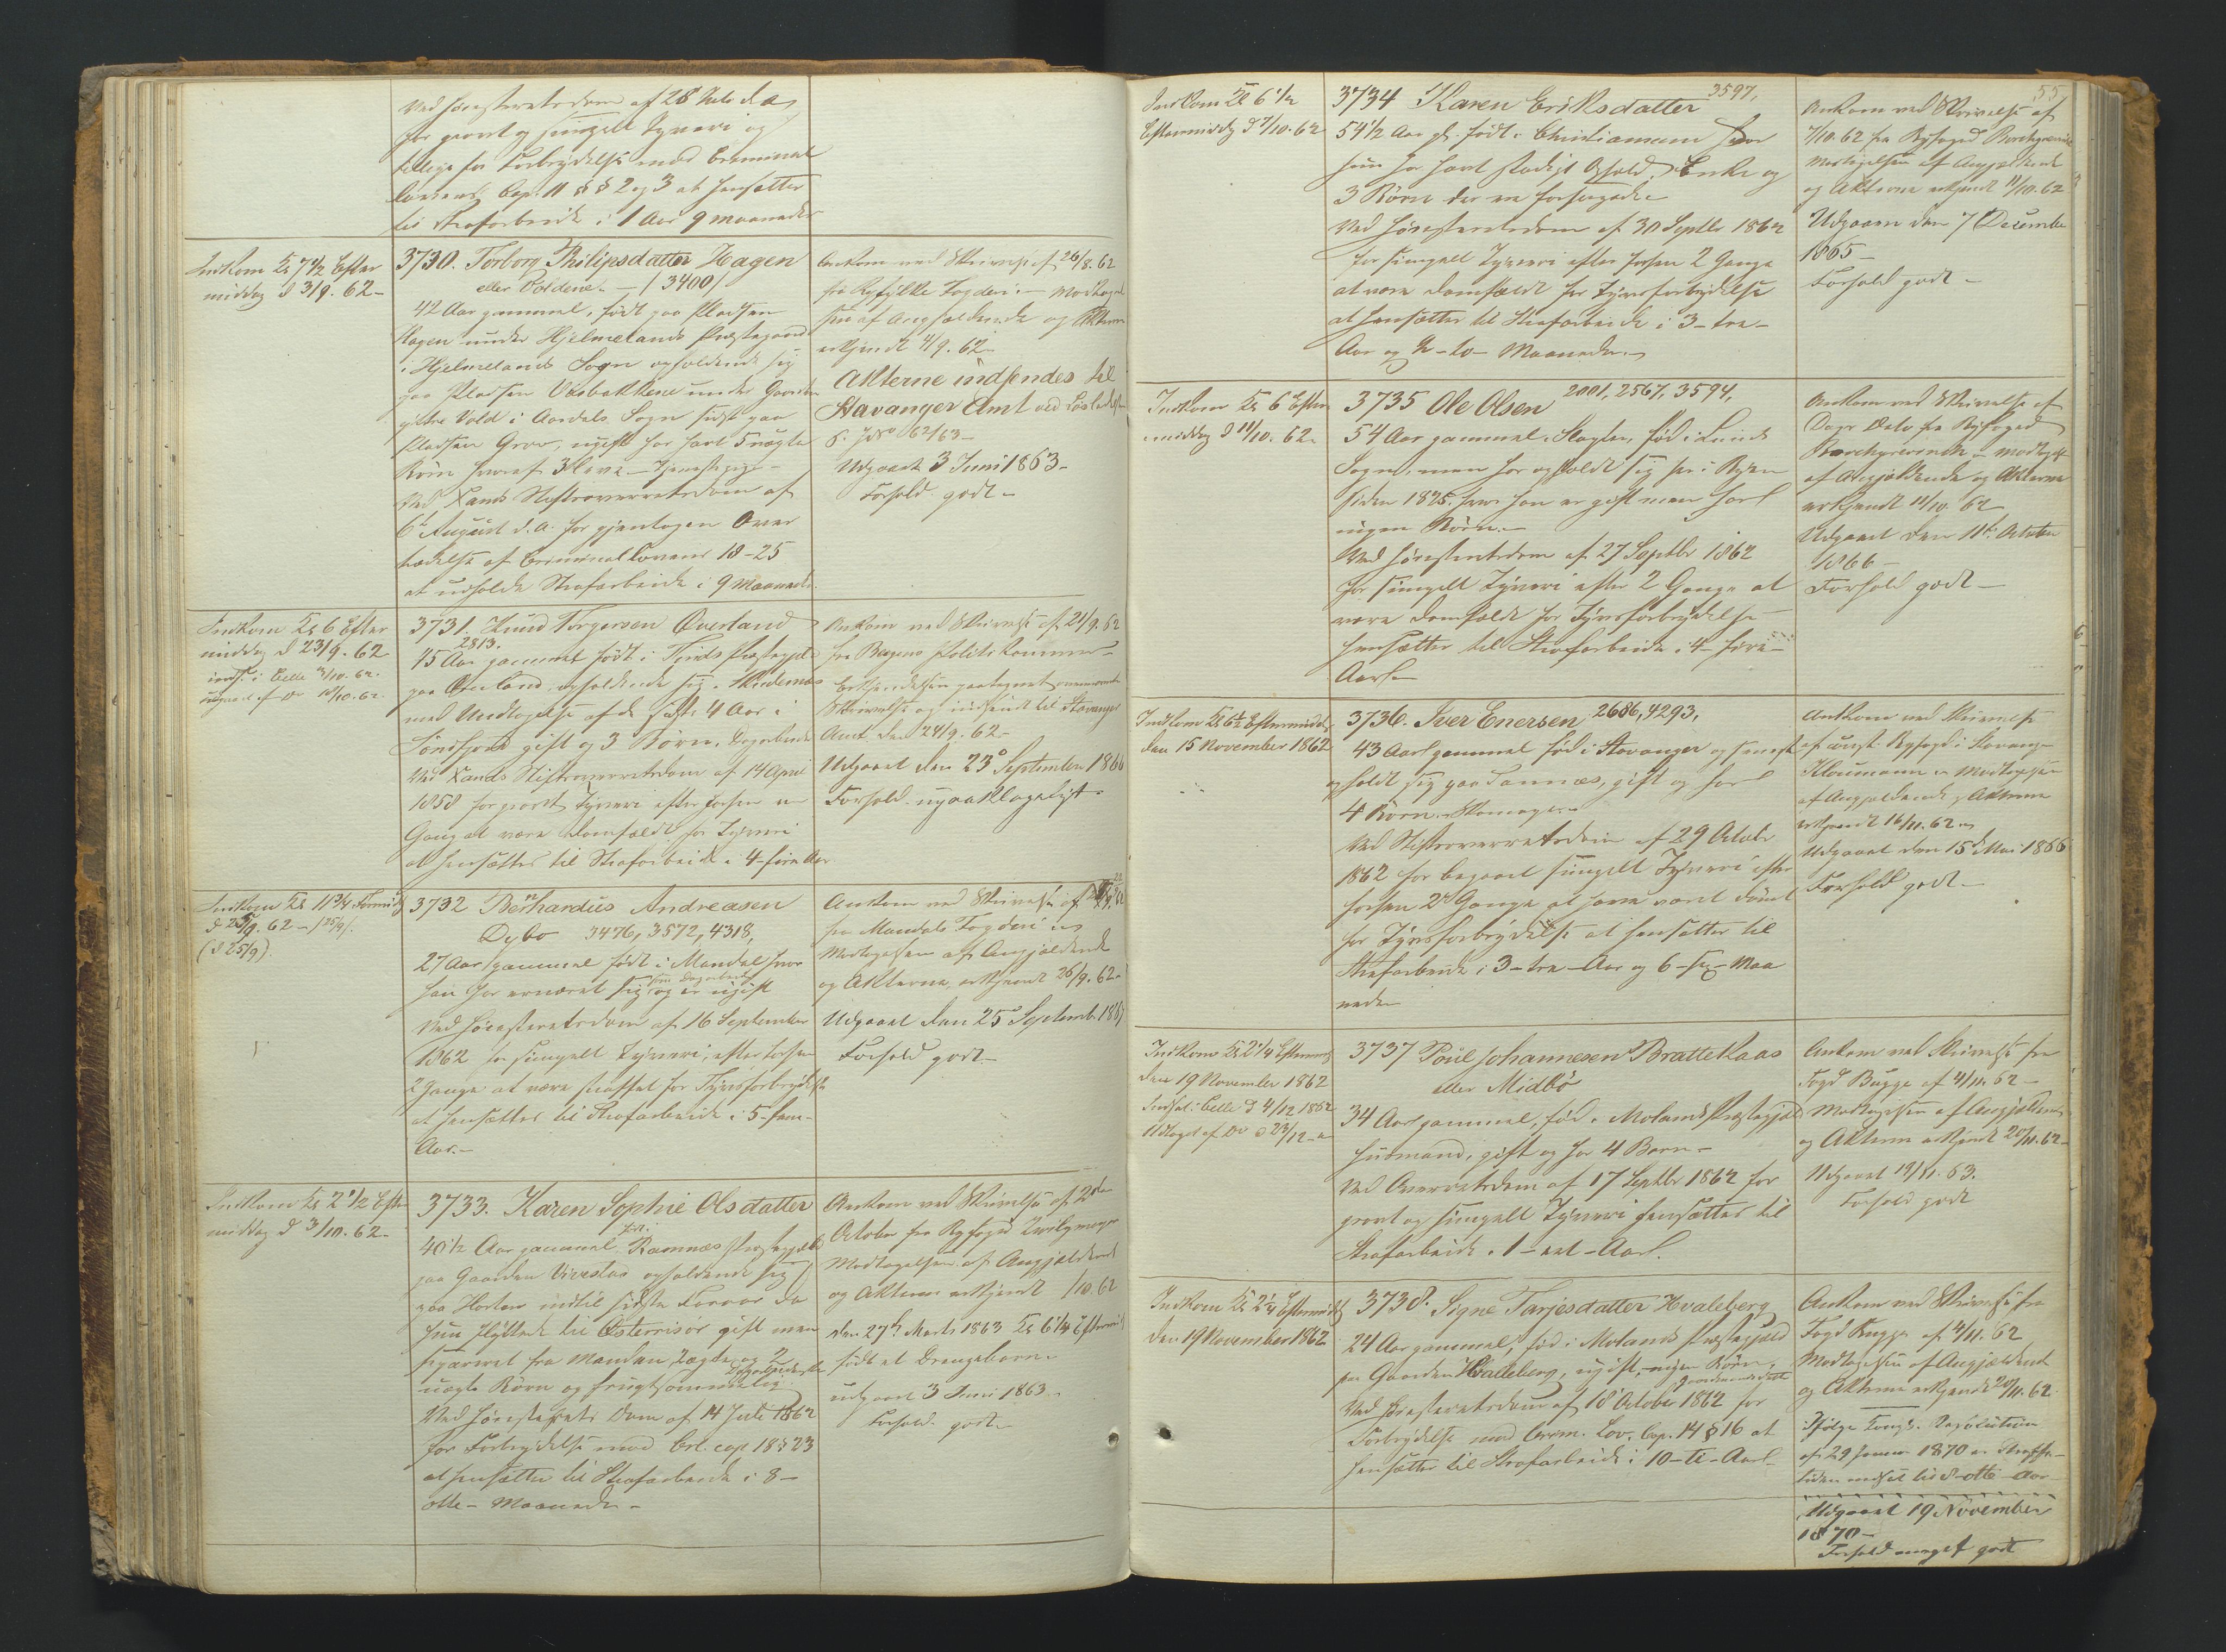 Ved Høiesteretsdom af 28 Juli d. a.
for grovt og simpelt Tyveri og
tillige for Forbrydelse mod Criminal
lovens Cap. 11 §§ 2 og 3 at hensættes
til Strafarbeide i 1 Aar 9 Maaneder
Indkom Kl 7 1/2 Efter
middag d 3/9. 62-
3730. Torborg Philipsdatter Hagen
eller Voldene. - /3400/
42 Aar gammel, født paa Pladsen
Hagen under Hjelmelands Præstegaard
i Hjelmelands Sogn opholdende sig
paa Pladsen Vasbakkene under Gaarden
ytre Vold i Aardals Sogn sidst paa
Pladsen Grov, ugift har havt 5 uægte
Børn hvoraf 3 leve - Tjenestepige -
Ved X.ands Stiftsoverretsdom af
6te August d. a. for gjentagen Over
trædelse af Criminallovens 18-25
at udholde Strafarbeide i 9 Maaneder.
Ankom med Skrivelse af 26/8. 62
fra Ryfylke Fogderi. - Modtagel
sen af Angjældende og Akterne
erkjendt 4/9. 62-
Akterne indsendes til
Stavanger Amt ved Løsladelsen
62/63-
Udgaaet 3 Juni 1863-
Forhold godt -
Indkom Kl 6 Efter
middag d 23/9. 62
inds. i Celle 3/10. 62.
udgaaet af Do 10/10. 62.
3731. Knud Torgersen Overland
2813.
45 Aar gammel født i Tinds Præstegjæld
paa Overland, opholdende sig i Skudenæs
med Undtagelse af de sidste 4 Aar i
Søndfjord gift og 3 Børn. Dagarbeider
Ved X.ands Stiftsoverretsdom af 14 April
1858 for grovt Tyveri efter forhen en
Gang at være domfældt for Tyveri
at hensættes til Strafarbeide i 4-fire Aar
Ankom med Skrivelse af 21/9. 62
fra Bergens Politikammer -
Erkjendelsen paategnet
Skrivelse og indsendt til Stavanger
Amt den 24/9. 62-
Udgaaet den 23de September 1866
Forhold upaaklageligt -
Indkom Kl 11 3/4 Formid
d 25/9. 62 - /25/9/.
(d 25/9).
3732 Bernhardus Andreasen
Dybo 3476, 3572, 4318,
27 Aar gammel født i Mandal hvor
han har ernæret sig som Dagarbeider og er ugift
Ved Høiesteretsdom af 16 September
1862 for simpelt Tyveri, efter forhen
2 Gange at være straffet for Tyvsforbrydelse
at hensættes til Strafarbeide i 5-fem-
Aar.-
Ankom med Skrivelse af
fra Mandals Fogderi
Modtagelsen af Angjældende
og Akterne erkjendt 26/9. 62-
Udgaaet den 25de Septemb. 1867
Forhold godt -
Indkom Kl 2 1/2 Efter
middag d 3/10. 62-
3733. Karen Sophie Olsdatter
40 1/2 Aar gammel, født i Ramnæs Præstegjæld
paa Gaarden Vivestad opholdende sig
paa Horten indtil sidste Foraar da
hun flyttede til Østerrisør gift men
separeret fra Manden, ægte og 2
uægte Børn og frugtsommelig. Dagarbeiderske
Ved Høiesterets Dom af 14 Juli 1862
for Forbrydelse mod Crl. cap 18 § 23
at hensættes til Strafarbeide i 8-
otte - Maaneder -
Ankom med Skrivelse af 2den
October fra Byfoged
Modtagelsen af Angjældende
og Akterne erkjendt /10. 62
Den 27de Marts 1863 Kl 6 1/4 Eftermid
født et Drengebarn.
udgaaet 3 Juni 1863.
Forhold godt -
55
Indkom Kl 6 1/2
Eftermiddag d 7/10. 62
3734 Karen Eriksdatter 3597,
54 1/2 Aar gl. født i Christianssand hvor
hun har havt stadigt Ophold. Enke og
3 Børn der ere forsørgede
Ved Høiesteretsdom af 30 Septbr 1862
for simpelt Tyveri efter forhen 2 Gange
at være domfældt for Tyvsforbrydelse
at hensættes til Strafarbeide i 3-tre-
Aar og 2-to- Maaneder. -
Ankom med Skrivelse af
7/10. 62 fra Byfoged Borchgrevink
Modtagelsen af Angjældende
og Akterne erkjendt 11/10. 62
Udgaaen den 7 December
1865-
Forhold godt -
Indkom Kl 6 Efter
middag d 11/10. 62
3735 Ole Olsen 2001, 2567, 3594,
54 Aar gammel. Slagter, fød i Lunds
Sogn, men har opholdt sig her i Byen
siden 1825, hvor han er gift men har
ingen Børn. -
Ved Høiesteretsdom af 27 Septbr 1862
for simpelt Tyveri efter 2 Gange at
være domfældt for Tyvsforbrydelse
hensættes til Strafarbeide i 4-fire-
Aar -
Ankom med Skrivelse af
Dags Dato fra Byfoged
Borchgrevink. - Modtagelsen
af Angjældende og Akterne
erkjendt 11/10 62
Udgaaet den 11te October
1866-
Forhold godt -
Indkom Kl 6 1/2 Eftermidd.
den 15 November 1862
3736. Iver Enersen 2686, 4293,
43 Aar gammel fød i Stavanger og senest
opholdt sig paa Sannæs, gift og har
4 Børn. Skomager -
Ved Stiftsoverretsdom af 29 Octobr
1862 for begaaet simpelt Tyveri efter
forhen 2de Gange at have været dømt
for Tyvsforbrydelse at hensættes til
Strafarbeide i 3-tre-Aar og 6-sex-Maa
neder
Ankom med Skrivelse
af const. Byfoged i Stavanger
Kloumann - Modtagelsen
af Angjældende og Akterne
erkjendt 16/11. 62
Udgaaet den 15de Mai 1866
Forhold godt -
Indkom Kl 2 1/4 Eftermid
den 19 November 1862
Indsat i Celle d 4/12 1862
Udtaget af Do d 23/12
3737 Poul Johannesen Brattekaas
eller Midbø
34 Aar gammel, fød i Molands Præstegjæld
Husmand, gift og har 4 Børn -
Ved Overretsdom af 17 Septbr 1862 for
grovt og simpelt Tyveri hensættes til
Strafarbeide i 1-eet-Aar.
Ankom med Skrivelse fra
Fogd Bugge af 4/11. 62-
Modtagelsen af Angjældende
og Akterne erkjendt 20/11. 62-
Udgaaet 19/11. 63.
Forhold godt
Indkom Kl 2 1/4 Eftermidd
den 19 November 1862
3738. Signe Tarjesdatter Hvaleberg
24 Aar gammel, fød i Molands Præstegjæld
paa Gaarden Hvaleberg, ugift, ingen Børn,
Gaardmandsdatter
Ved Høiesteretsdom af 18 October 1862 for
Forbrydelse mod Crim. Lov. Cap. 14 § 16 at
hensættes til Strafarbeide i 10-ti-Aar.
Ankom med Skrivelse fra
Fogd Bugge af 4/11. 62
Modtagelsen af Angjældende
og Akterne erkjendt 20/11. 62.
Ifølge Kongl. Resolution
af 29 Januar 1870 er Straffe-
tiden nedsat til 8-otte-Aar
Udgaaet 19 November
1870-
Forhold meget godt